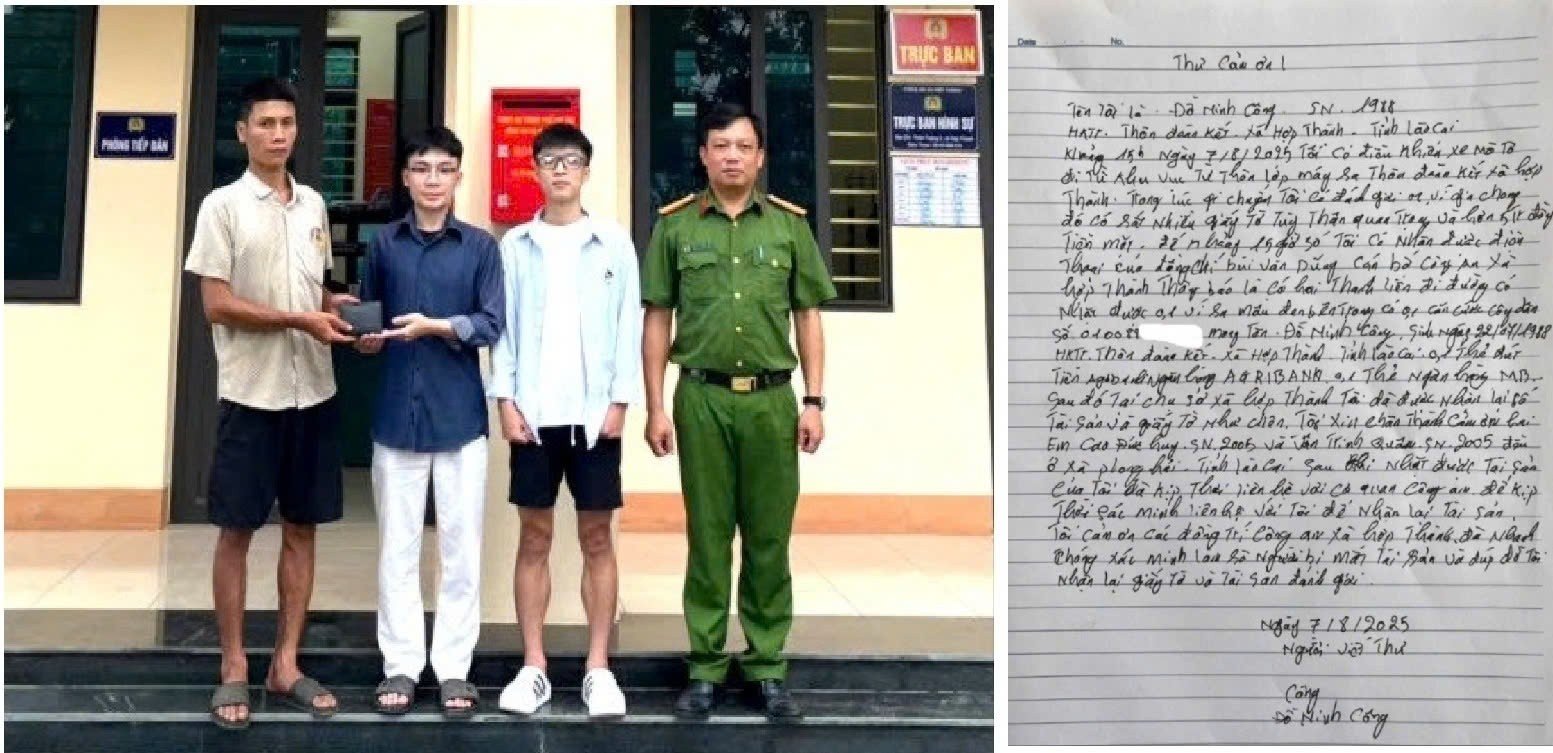 PHÒNG TIẾP DÂN
TRỰC BAN
TRỰC BAN HÌNH SỰ
Date No.
Thư Cảm ơn !
Tên Tôi là . Đỗ Minh Công SN . 1988
HKTT. Thôn đoàn Kết . Xã Hợp Thành . Tỉnh Lào Cai
Khoảng 15h Ngày 7/8/2025 Tôi Có điều Khiển Xe Mô Tô
đi Từ Khu Vực Từ Thôn Lập máy ra Thôn đoàn Kết xã hợp
Thành. Trong lúc di chuyển Tôi Có đánh rơi 01 ví da
đó Có rất Nhiều giấy Tờ Tùy Thân quan Trọng và
Tiền mặt. đế Tôi Có Nhận được điện
Thoại của đồng Chí bùi Văn Dũng Cán bộ Công An Xã
hợp Thành Thông báo là Có hai Thanh Niên đi đường Có
Nhặt được 01 ví da màu đen bên Trong Có 01 Căn Cước Công dân
Số 01008 mang Tên . Đỗ Minh Công, Sinh Ngày 22/07/1988
HKTT. Thôn đoàn Kết . Xã Hợp Thành Tỉnh Lào Cai 01 Thẻ
Tiền Ngân hàng AGRIBANK, 01 Thẻ Ngân hàng MB.
Sau đó Tại trụ Sở xã hợp Thành Tôi đã được Nhận lại Số
Tài Sản và giấy Tờ Như Trên. Tôi Xin Chân Thành Cảm ơn hai
Em Cao Đức huy. SN 2005 và Văn Trịnh Quân SN. 2005 đều
ở Xã phong hải . Tỉnh Lào Cai Sau Khi Nhặt được Tài Sản
Của Tôi đã Kịp Thời liên hệ với Cơ quan Công an để Kịp
Thời Xác Minh liên hệ Với Tôi để Nhận lại Tài Sản,
Tôi Cảm ơn Các đồng Trí Công an Xã hợp Thành đã Nhanh
Chóng xác minh Người bị mất Tài Sản và đúp đỡ Tôi
Nhận lại giấy Tờ và Tài Sản đánh rơi.
Ngày 7/8/2025
Người Viết Thư
Công
Đỗ Minh Công